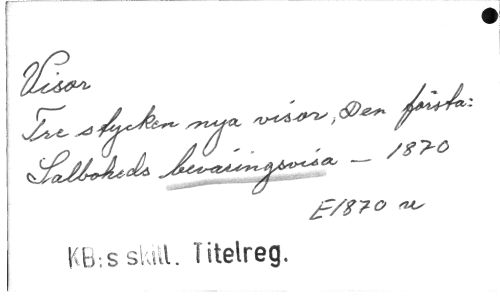 Visor
Tre stycken nya visor, Den första:
Salboheds bevaringsvisa - 1870
E1870 u
KB:s skill. Titelreg.